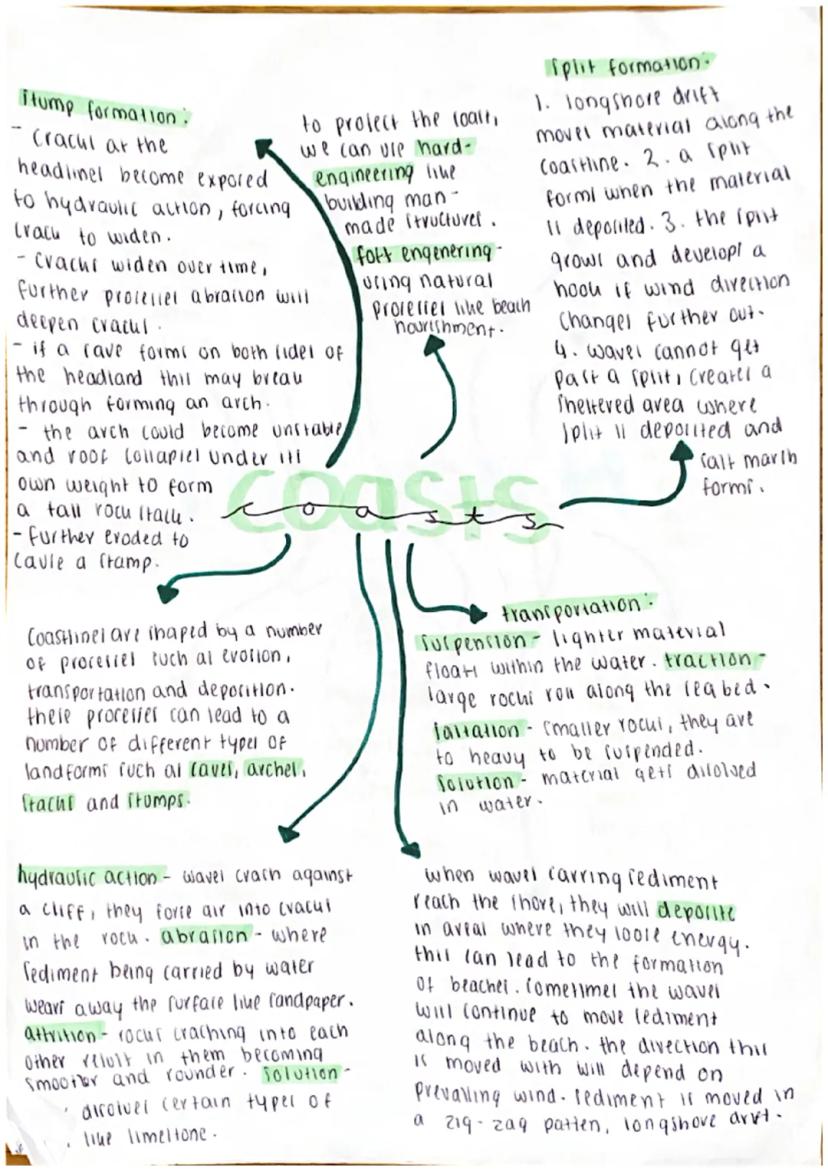 stump formation:
- cracks at the
headlines become exposed
to hydraulic action, forcing
cracks to widen.
- cracks widen over time,
further processes abrasion will
deepen cracks.
- if a cave forms on both sides of
the headland this may break
through forming an arch.
- the arch could become unstable
and roof collapses under its
own weight to form
a tall rock stack.
- further eroded to
cause a stamp.
to protect the coast,
we can use hard-
engineering like
building man-
made structures.
soft engenering -
using natural
processes like beach
nourishment.
split formation:
1. longshore drift
moves material along the
coastline. 2. a split
forms when the material
is deposited. 3. the split
grows and develops a
hook if wind direction
changes further out.
4. waves cannot get
past a split, creates a
sheltered area where
split is deposited and
salt marsh
forms.
COASTS
coasts
coastlines are shaped by a number
of processes such as erosion,
transportation and deposition.
these processes can lead to a
number of different types of
landforms such as caves, arches,
stacks and stumps.
transportation:
suspension - lighter material
floats within the water. traction -
large rocks roll along the sea bed.
saltation - smaller rocks, they are
to heavy to be suspended.
solution - material gets disolved
in water.
hydraulic action - waves crash against
a cliff, they force air into cracks
in the rock. abrasion - where
sediment being carried by water
wears away the surface like sandpaper.
attrition - rocks craching into each
other result in them becoming
smoother and rounder. solution -
disolves certain types of
like limestone.
when waves carring sediment
reach the shore, they will deposite
in areas where they loose energy.
this can lead to the formation
of beaches. sometimes the waves
will continue to move sediment
along the beach. the direction this
is moved with will depend on
prevailing wind. sediment is moved in
a zig-zag patten, longshore drift.